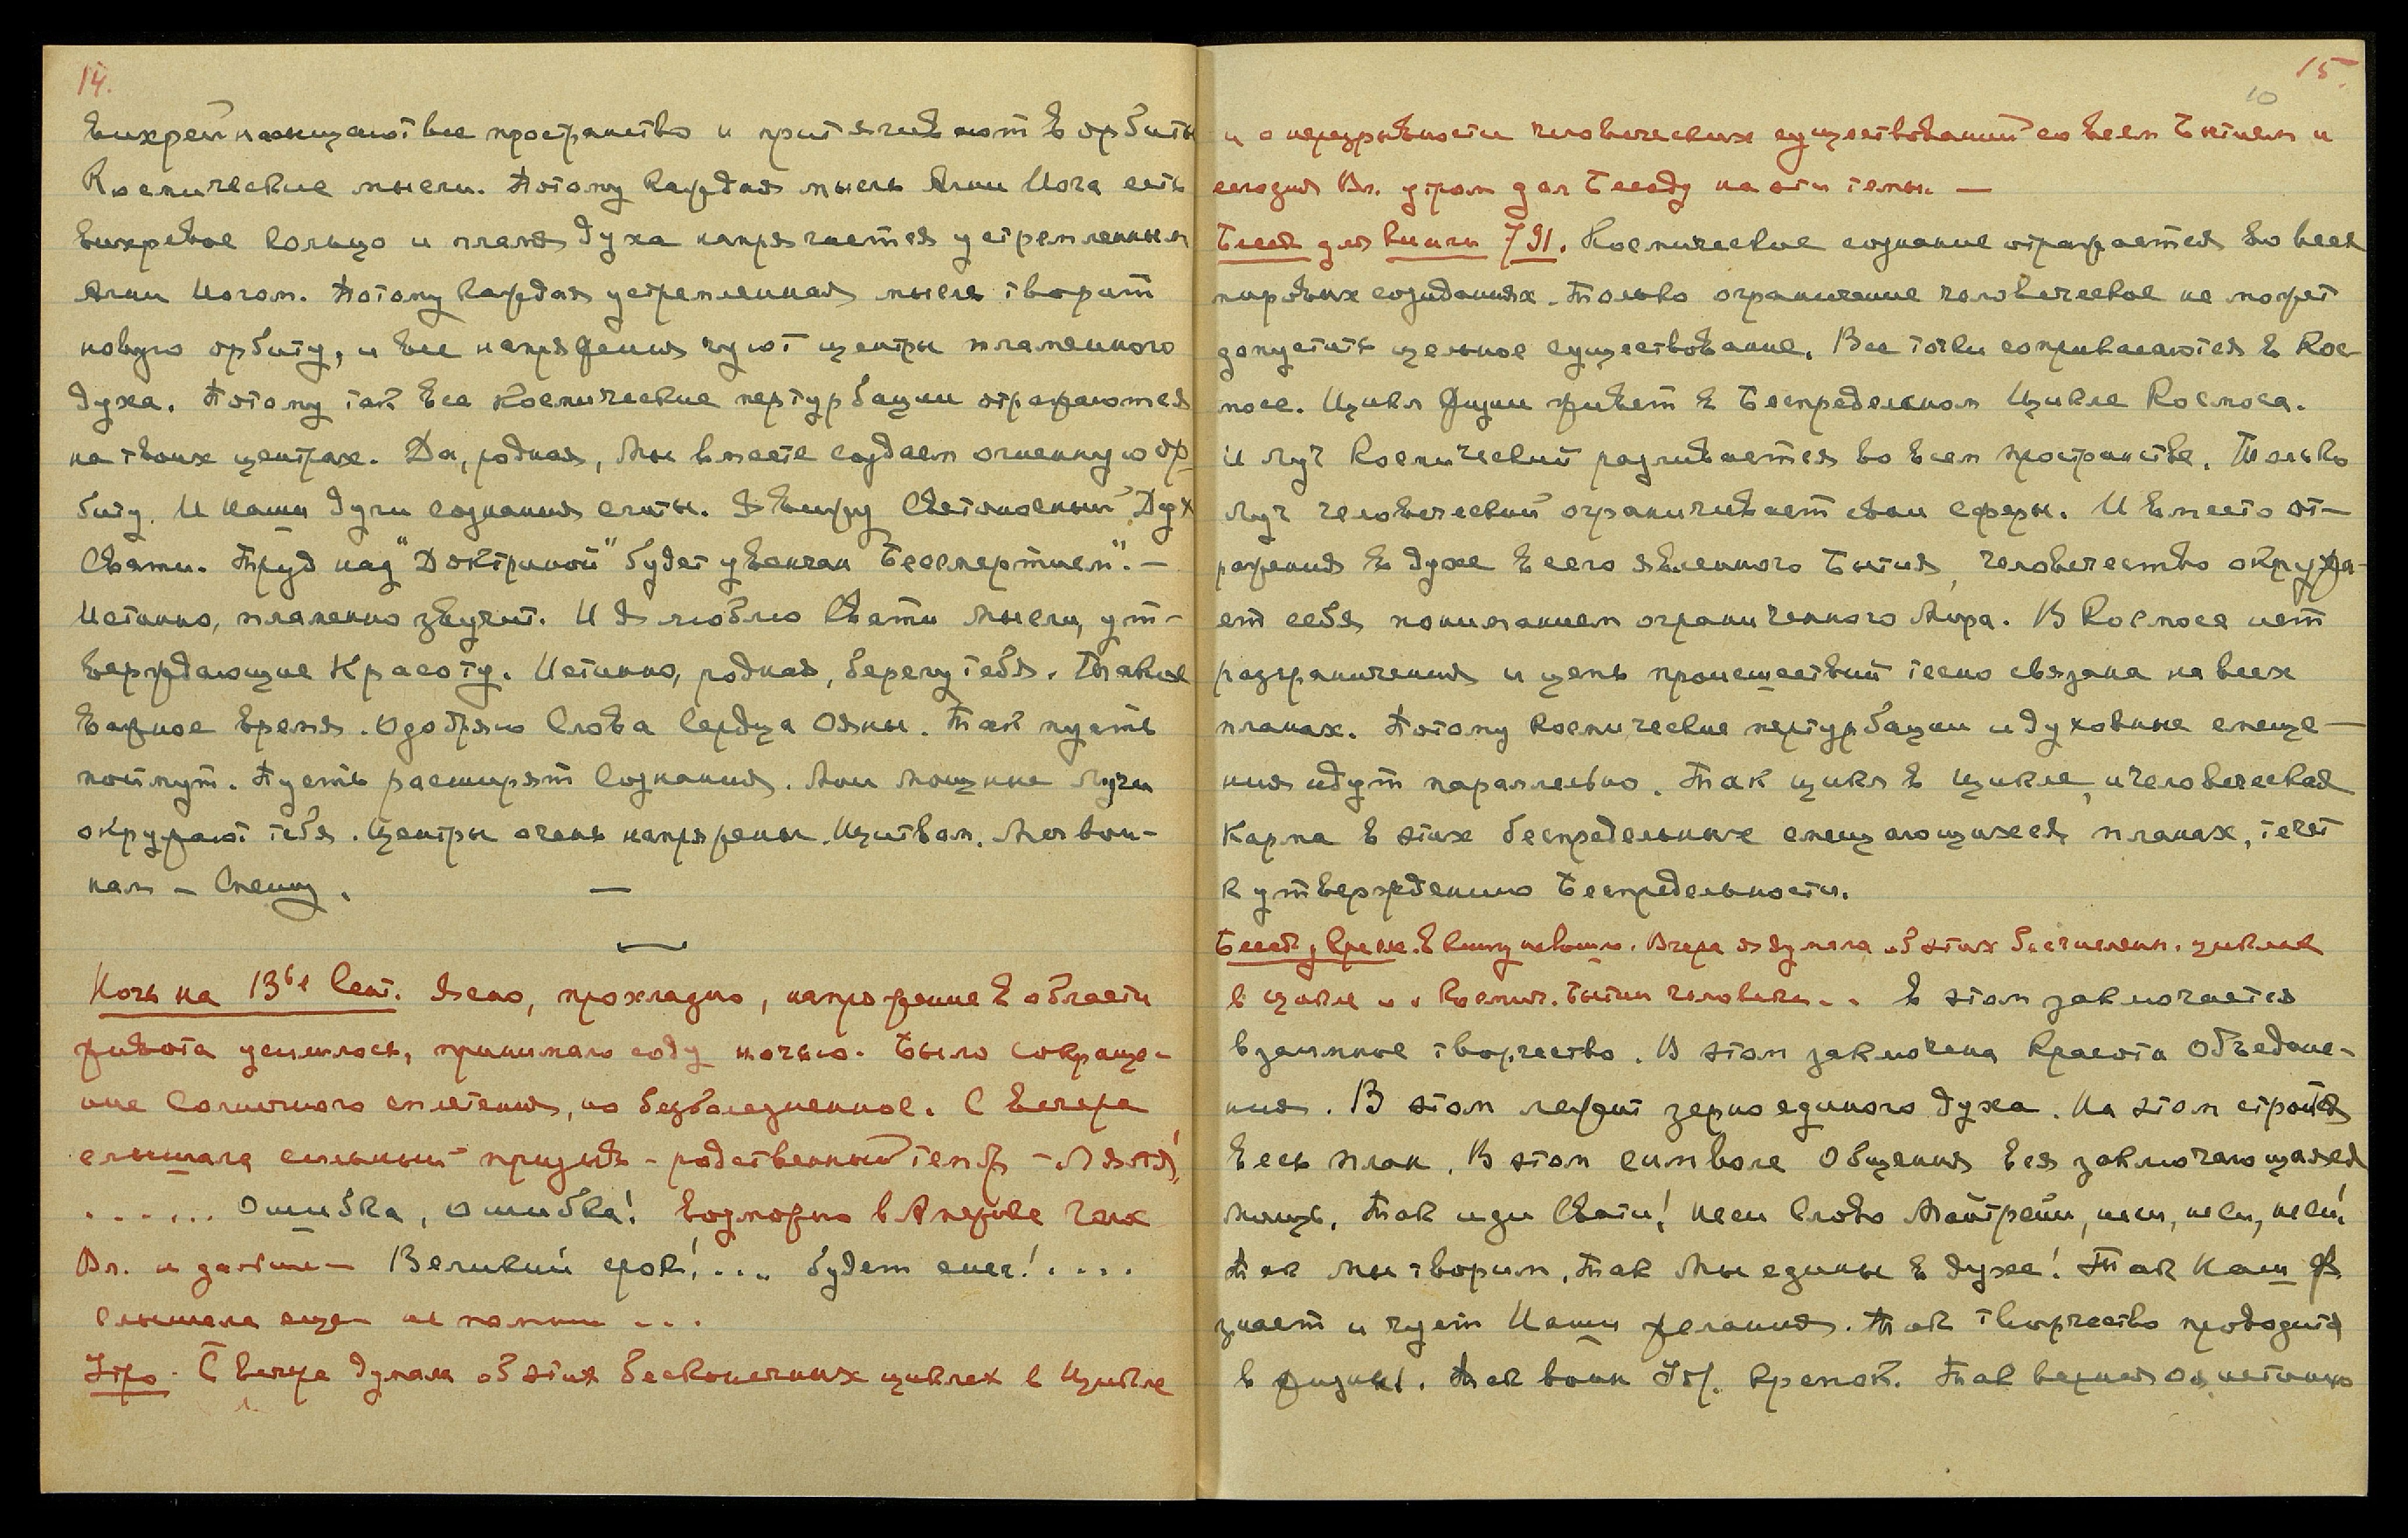 14.
вихрей насыщают все пространство и притягивают в орбиты
Космические мысли. Потому каждая мысль Агни Йога есть
вихревое кольцо и пламя духа напрягается устремленным
Агни Йогом. Потому каждая устремленная мысль творит
новую орбиту, и все напряжения чуют центры пламенного
духа. Потому так все космические пертурбации отражаются
на твоих центрах. Да, родная, мы вместе создаем огненную ор-
биту. И наши души сознания слиты. Я вижу Светоносный Дух
Свати. Труд над "Доктриной" будет увенчан Бессмертием". —
Истинно, пламенно звучит. И Я люблю Свати мысли, ут-
верждающие Красоту. Истинно, родная, берегу тебя. Такое
важное время. Одобряю Слова Сердца Ояны. Так пусть
поймут. Пусть расширят Сознания. Мои мощные Лучи
окружают тебя. Центры очень напряжены. Щит вам. Мой вои-
нам — Спешу. —
Ночь на 13ое Сент. Ясно, прохладно, напряжение в области
живота усилилось, принимаю соду ночью. Было сокраще-
ние Солнечного сплетения, но безболезненное. С вечера
слышала сильный призыв - родственный тембр - Ляля!
...... Ошибка, ошибка! Возможно в Америке
Вл. и затем — Великий срок! .... будет снег! ....
Слышала еще — не помню ...
Утро. С вечера думала об этих бесконечных циклах в Цикле
15
10
и о неразрывности человеческих существований со всем Бытием и
сегодня Вл. утром дал Беседу на эти темы. —
Беседа для книги 791. Космическое сознание отражается во всех
мировых созиданиях. Только ограничение человеческое не может
допустить цельное существование. Все точки соприкасаются в Кос-
мосе. Цикл жизни живет в Беспредельном Цикле Космоса.
И Луч Космический разливается во всем пространстве. Только
луч человеческий ограничивает свои сферы. И вместо от-
ражения в духе всего явленного Бытия, человечество окружа-
ет себя пониманием ограниченного Мира. В Космосе нет
разграничения и цепь происшествий тесно связана на всех
планах. Потому космические пертурбации и духовные смеще-
ния идут параллельно. Так цикл в цикле, и человеческая
карма в этих беспредельных смещающихся планах, течет
к утверждению Беспредельности.
Вчера я думала об этих бесчислен. циклах
в цикле и о Космич. бытии человека.. В этом заключается
взаимное творчество. В этом заключена Красота Объедине-
ния. В этом лежит зерно единого духа. На этом строится
весь план. В этом символе Общения вся заключающаяся
мощь. Так иди Свати! неси Слово Майтрейи, неси, неси, неси!
Так Мы творим, Так Мы едины в духе! Так Наш Ф.
знает и чует Наши желания. Так творчество проводится
в жизнь. Так воин Уд. крепок. Так верная О. истинно